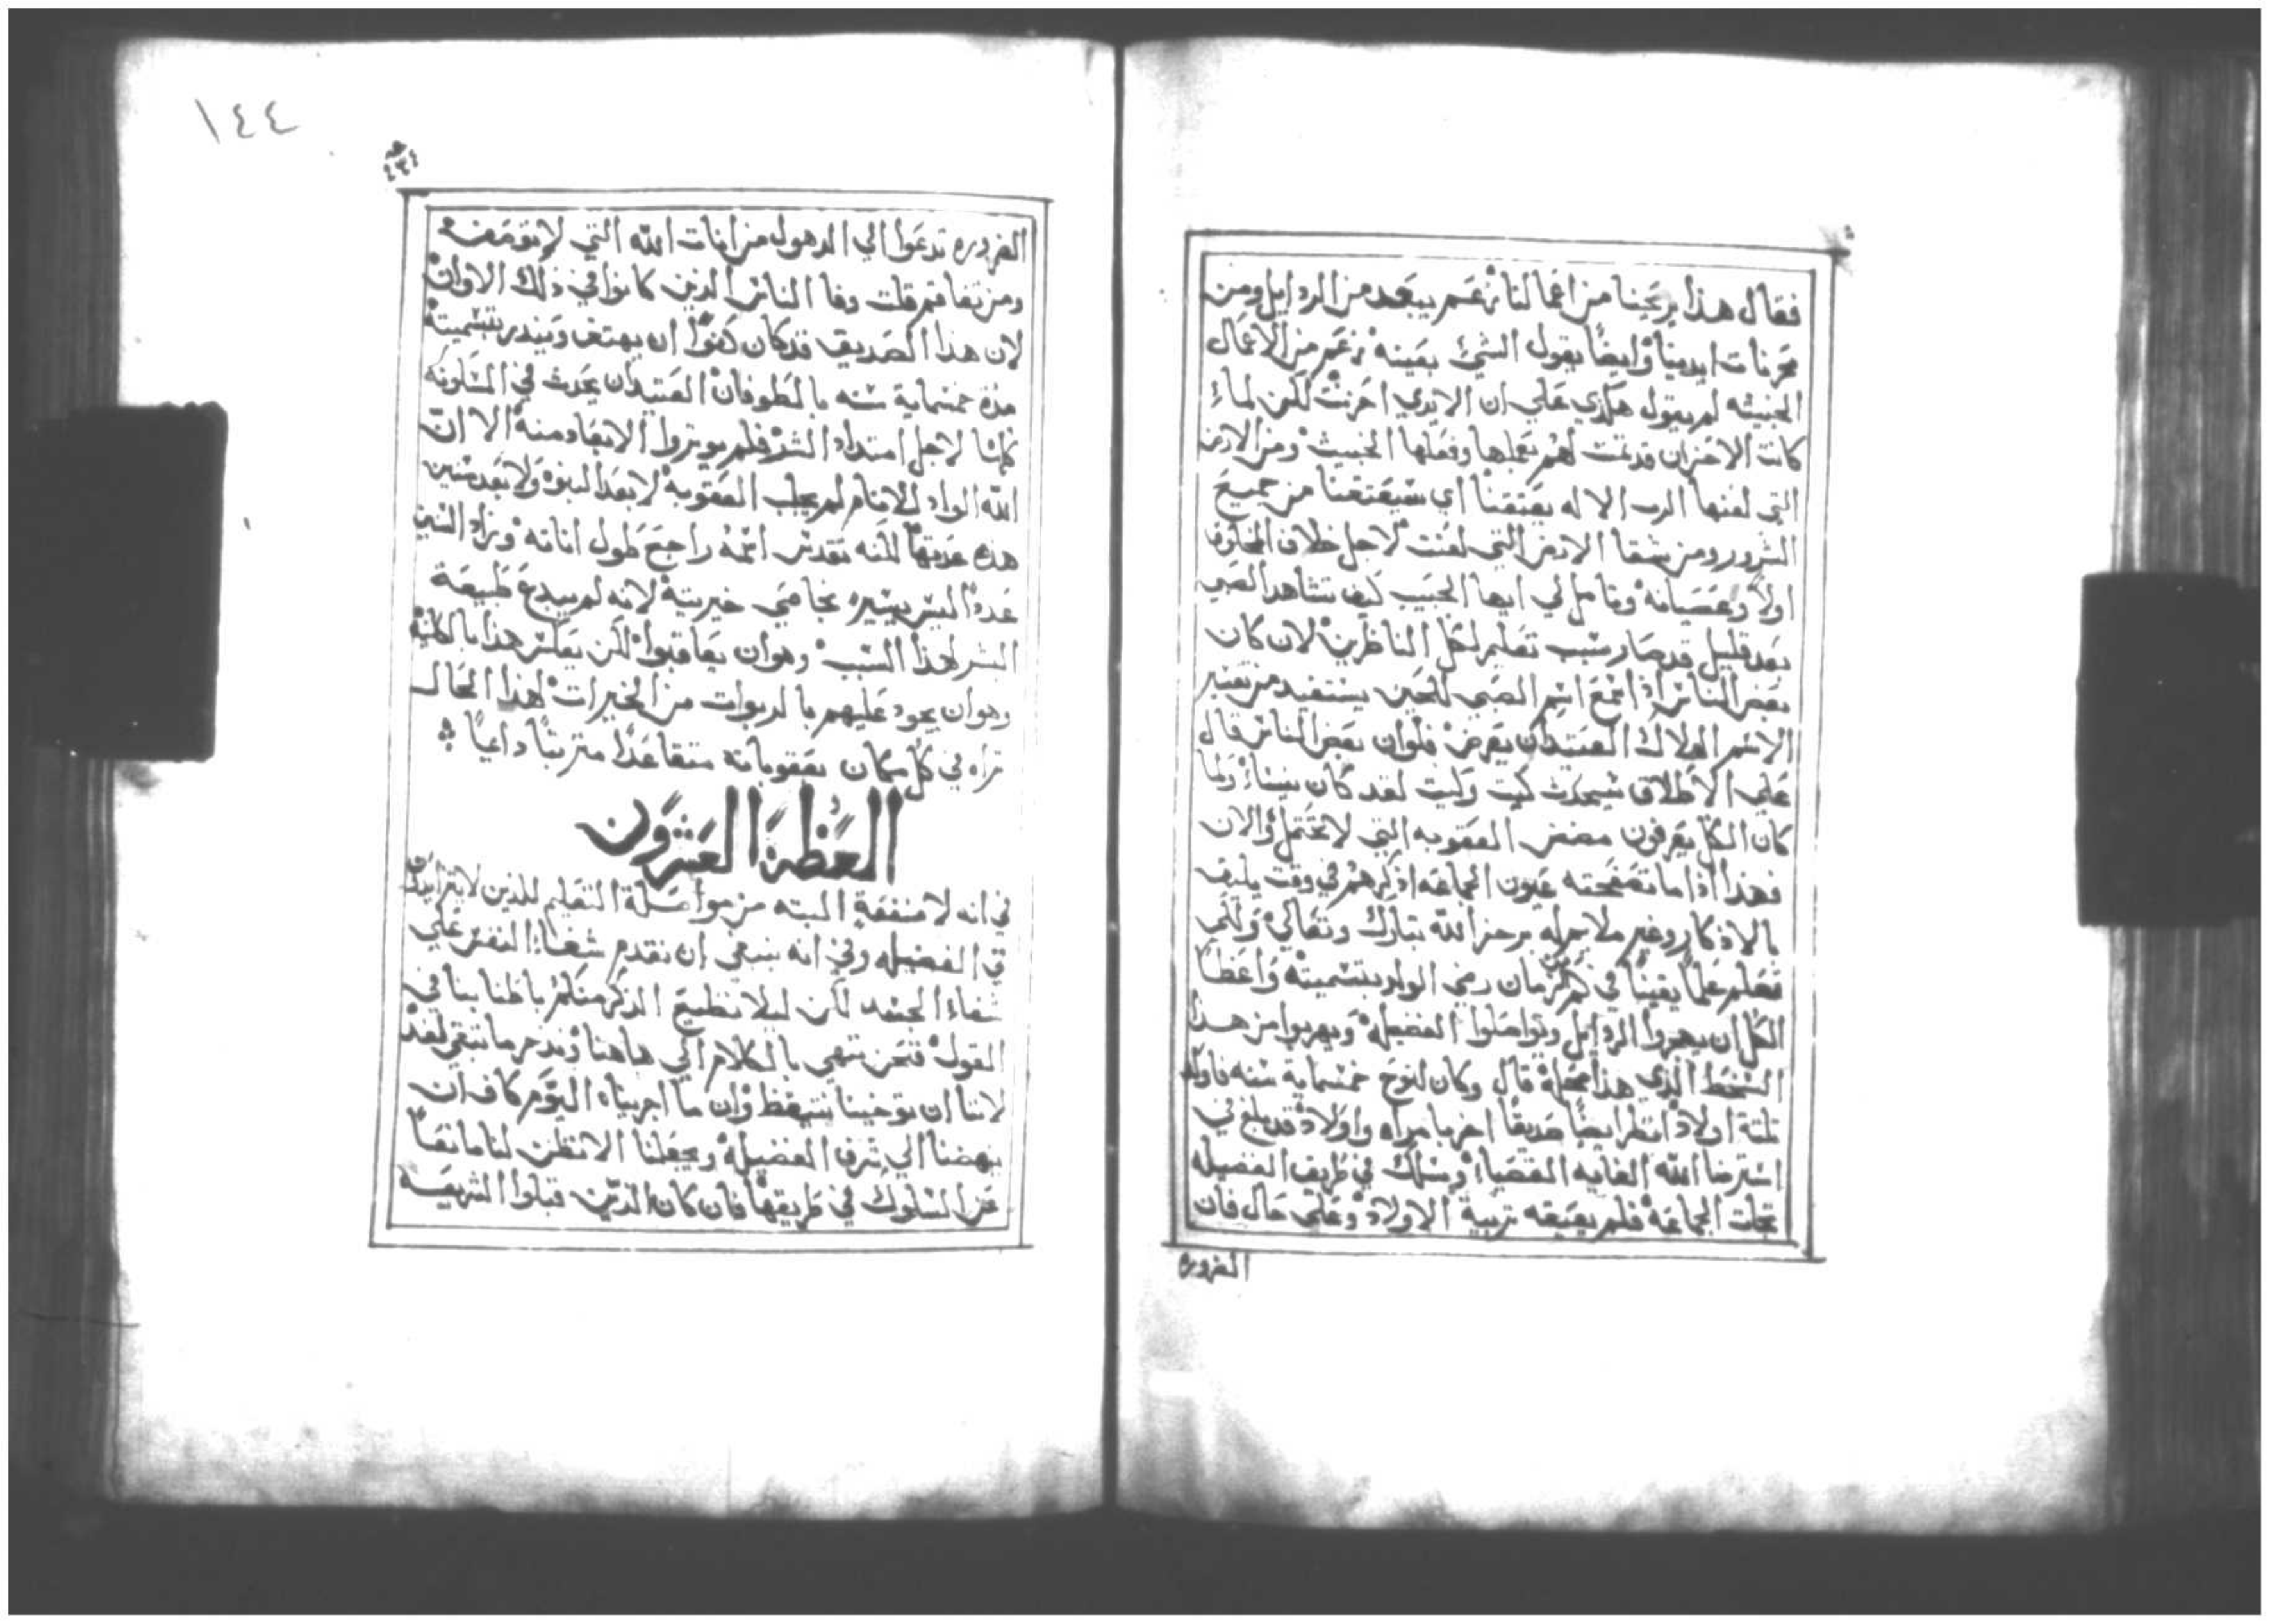 فقال هذا يريحنا من اعمالنا زعم يبعد من الرذايل ومن
محزنات ايدينا وايضا يقول الشي بعينه زعم من الاعمال
الخبيثه لم يقول هكذي علي ان الايدي احزنت لكن لما
كانت الاحزان قد نمت لهم بعملها وفعلها الخبيث ومن الارض
التي لعنها الرب الاله يعتقنا اي سيعتقنا من جميع
الشرور ومن شقا الارض التي لعنت لاجل خلاف المخلوق
اولا وعصيانه وتامل لي ايها الحبيب كيف تشاهد الصبي
بعد قليل قد صار سبب تعليم لكل الناظرين لان كان
بعض الناس اذا سمع اسم الصبي للحين يستفيد من تفسير
الاسم الهلاك العتيد ان يعرض فلوان بعض الناس قال
علي الاطلاق سيحدث كيت وكيت لقد كان ينسا ولما
كان الكل يعرفون مضض العقوبه التي لا تحتمل والان
فهذا اذا ما تصفحته عيون الجماعه اذكرهم في وقت يليق
بالاذكار وغير ملاجله يرجز الله تبارك وتعالي ولكي
فعلم علما يقينا في كم من زمان رضي الوالد بتسميته واعظا
الكل ان يهجروا الرذايل ويواصلوا الفضيله ويهربوا من هذا
السخط الذي هذا محله قال وكان لنوح خمسماية سنه فاولد
ثلثة اولاد انظر ايضا صديقا اخر بامراه واولاد قد بلغ في
استرضا الله الغايه القصيا وسلك في طريق الفضيله
تجات الجماعه فلم يعيقه تربية الاولاد وعلي حال فان
الضروره
١٤٤
الضروره تدعوا الي الدهول من انات الله التي لا توصف
ومن تفاقم قلت وفا الناس الذين كانوا في ذلك الاوان
لان هذا الصديق قد كان كفوا ان يهتف وينذر بتسميته
مدة خمسماية سنه بالطوفان العتيد ان يحدث في المسكونه
كلها لاجل امتداد الشر فلم يوثروا الابتعاد منه الا ان
الله الواد للانام لم يجلب العقوبه لا بعد النبوه ولا بعد سنين
هذه عدتها لكنه تقدس اسمه راجع طول اناته وزاد السنين
عدد ليس بيسير بخاصي خيريته لانه لم يبدع طبيعة
البشر لهذا السبب وهو ان يعاقبوا لكن بعكس هذا بالكلية
وهو ان يجود عليهم بالربوات من الخيرات لهذا الحال
تراه في كل مكان بعقوباته متقاعدا متريثا داعيا
العظة العشرون
في انه لا منفعة البته من مواصلة التعليم للذين لا يتزايدون
في الفضيله وفي انه ينبغي ان نقدم شفاء النفس علي
شفاء الجسد لكن ليلا نطيع الذكر منكم باطنابنا في
القول فنحن ننهي بالكلام الي هاهنا وندخر ما تبقي لغد
لاننا ان توخينا نتيقظ وان ما اجريناه اليوم كاف ان
ينهضنا الي شرف الفضيله ويجعلنا الا نظن لنا مانعا
عن السلوك في طريقها فان كان الذين قبلوا الشريعة